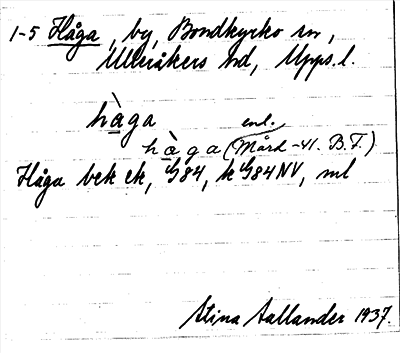 1-5 Håga, by, Bondkyrko sn,
Ulleråkers hd, Upps. l.
hàga enl.
hàga (Mård -41. B.F.)
Håga bek ek, G84, k G84NV, ml
Stina Sallander 1937.